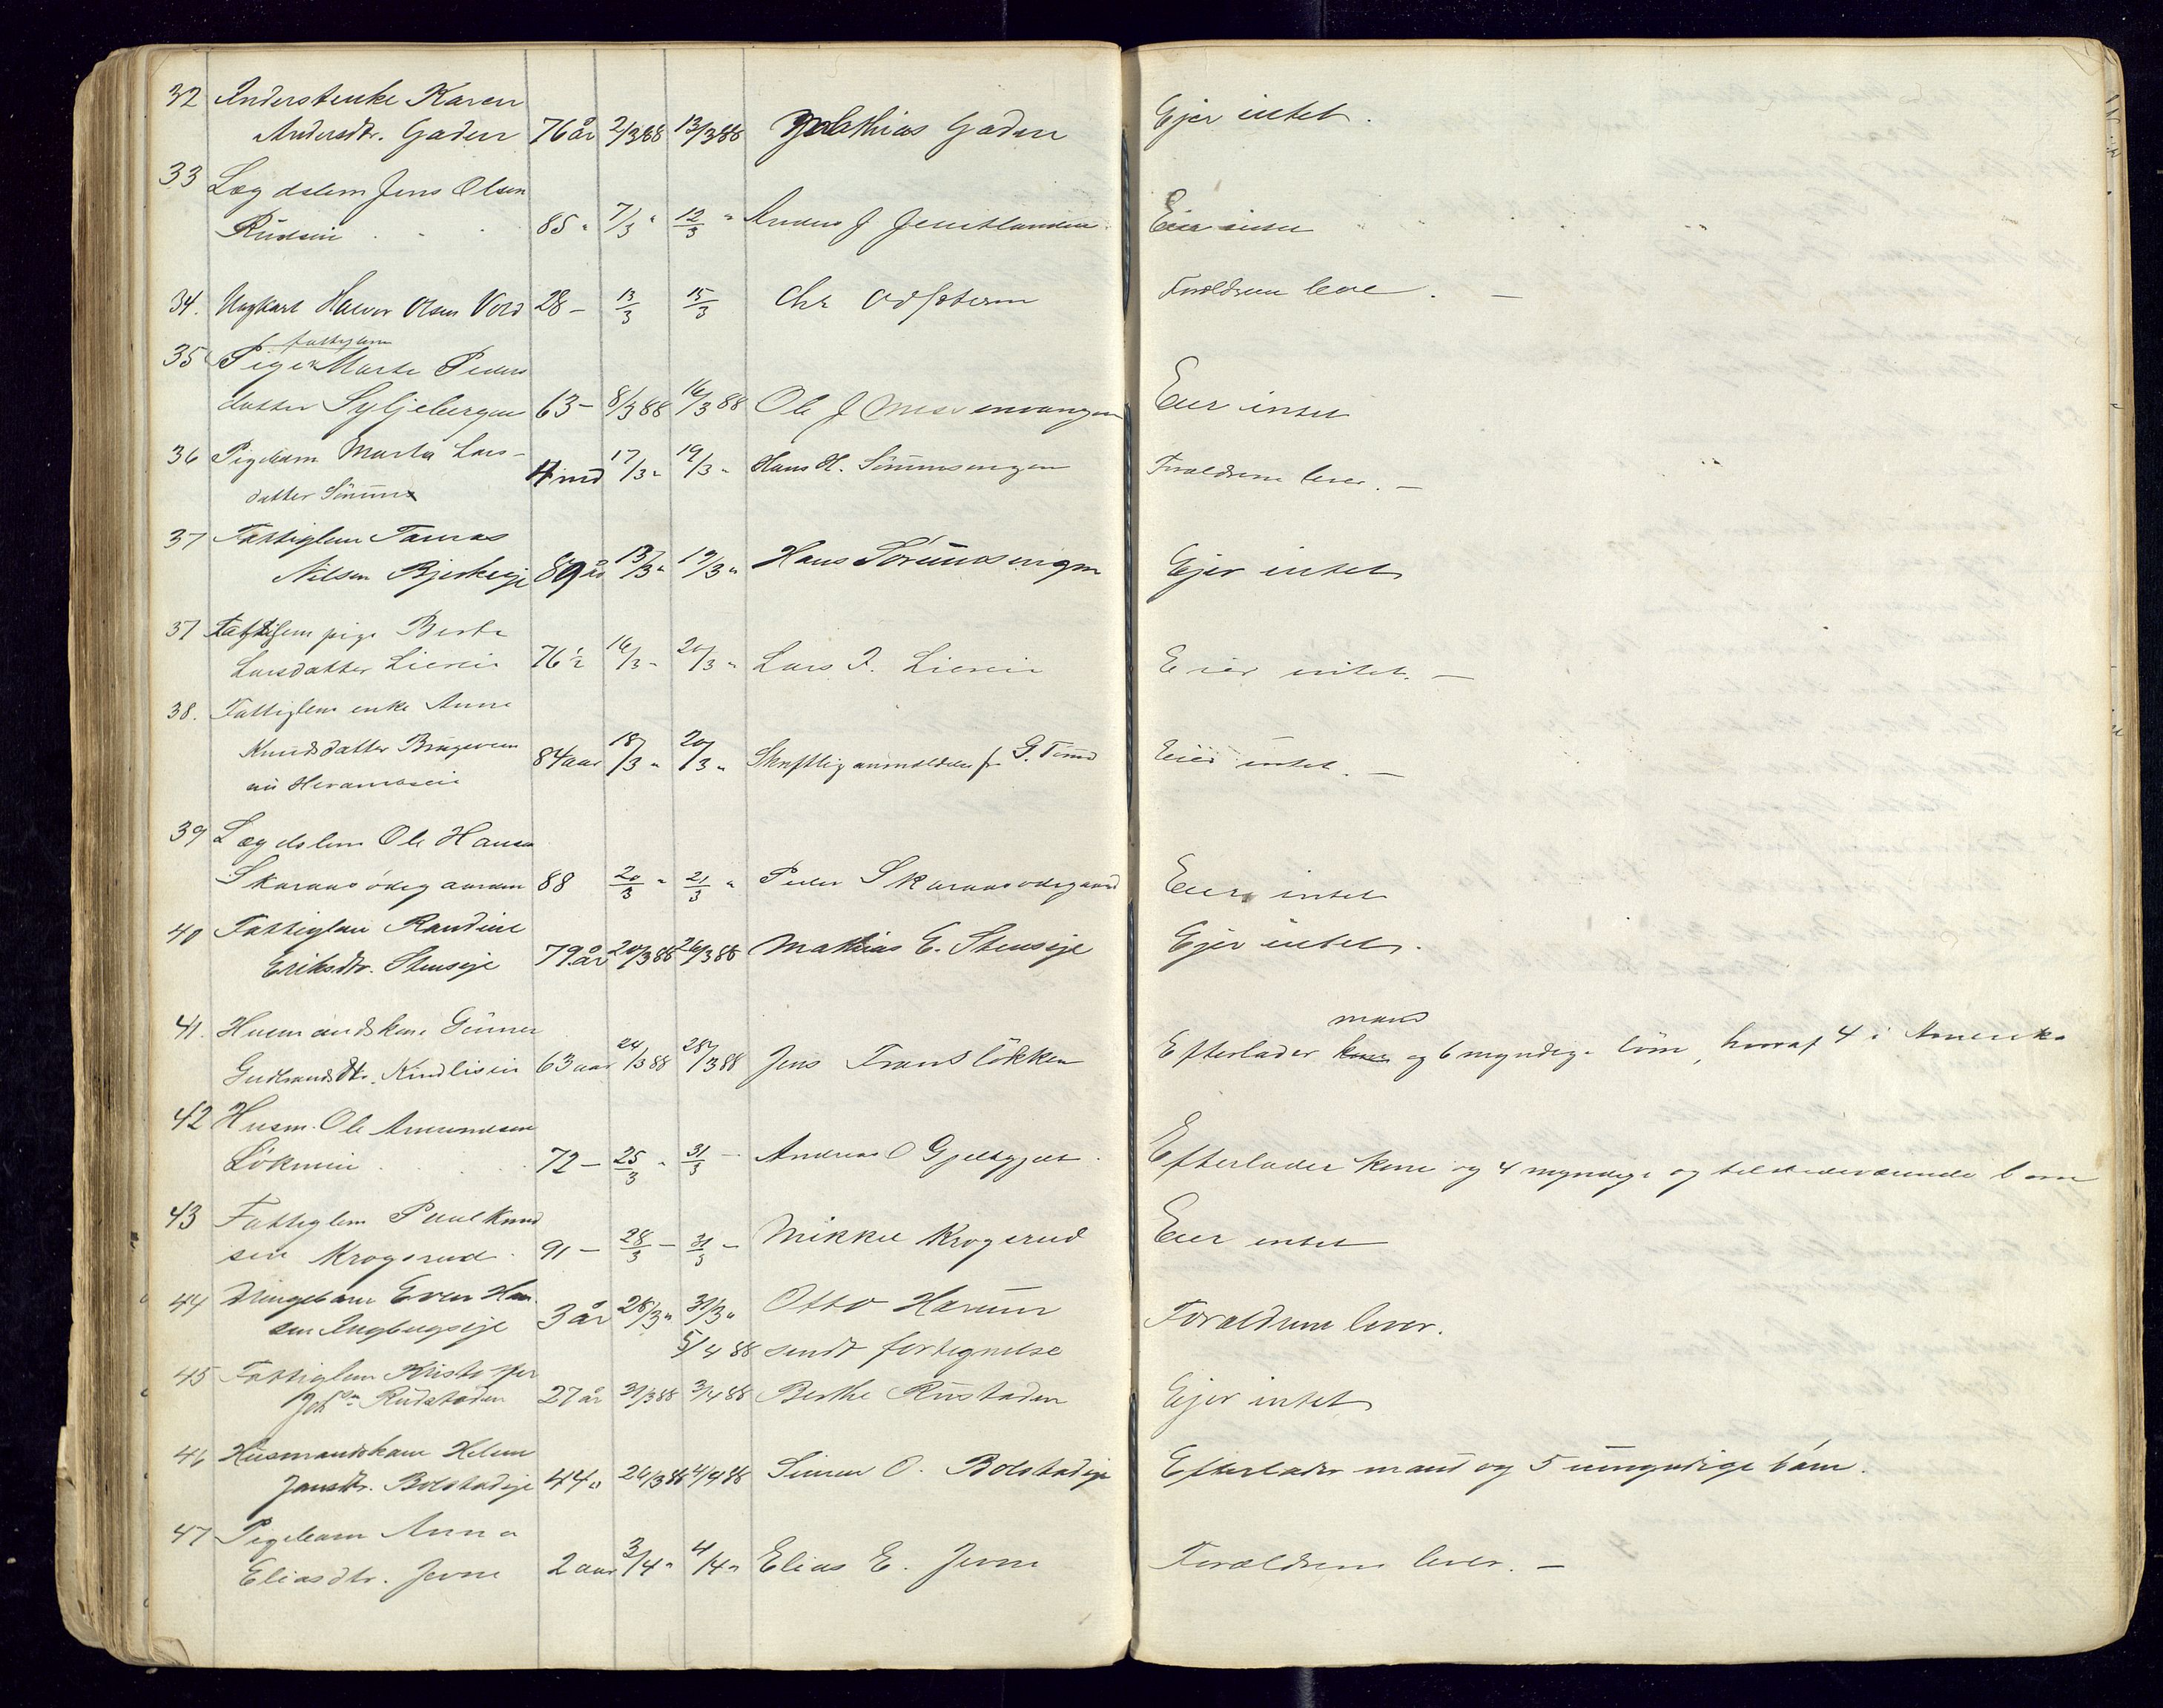 32 Inderstenke Karen
Andersdtr. Gaden 76 år 2/3 88 13/3 88 Mathias Gaden Ejer intet.
33 Lægdslem Jens Olsen
85 " 7/3 " 12/3 " Anders J Eier intet
34. Ungkarl Halvor Olsen Vold 28 – 13/3 15/3 Chr Forældrene leve. –
fattiglem
35 Pige Marte Peders
datter Syljebergen 63 – 8/3 88 16/3 88 Ole J Eier intet
36 Pigebarn Marta Lars-
datter 4 md 17/3 " 19/3 " Hans H. Forældrene lever. –
37 Fattiglem Tomas
Nilsen Bjerkeeje 89 år 13/3 " 19/3 " Hans Ejer intet
37 Fattiglem pige Berte
Larsdatter Lieneie 76 ½ 16/3 " 20/3 " Lars J. Lieneie Eier intet. –
38. Fattiglem enke Anne
Knudsdatter
84 aar 18/3 " 20/3 " Skriftlig anmeldelse fr G. Tømd Eier intet. –
39 Lægdslem Ole Hansen
Skaraasødegaarden 88 20/3 " 21/3 " Peder Skaraasødegaard Eier intet
40 Fattiglem Randine
Eriksdtr. Stenseje 79 år 20/3 88 26/3 88 Mathias E. Stenseje Ejer intet.
mand
41. Husmandskone Gunner
Gudbrandsdtr. Kindliseie 63 aar 24/3 88 28/3 88 Jens Franslökken Efterlader kone og 6 myndige börn, hvoraf 4 i Amerika
42 Husm. Ole Amundsen
Lökneeie 72 – 25/3 " 31/3 – Andreas O Efterlader kone og 4 myndige og tilstedeværende børn
43 Fattiglem Paul Knud
sen Krogsrud 91 – 28/3 – 31/3 – Mikkel Krogsrud Eier intet
44 Drengebarn Even Han
sen 3 år 28/3 " 31/3 " Otto Forældrene lever.
5/4 88 sendt fortegnelse
45 Fattiglem Kristoffer
Rudstaden 27 år 31/3 88 3/4 88 Berthe Rustaden Ejer intet
46 Husmandskone Helene
Jansdtr. Bolstadeje 44 " 26/3 88 4/4 88 Simen O. Bolstadeje Efterlader mand og 5 umyndige børn.
47 Pigebarn Anna
Eliasdtr. Jevne 2 aar 3/4 " 4/4 " Elias E. Jevne Forældrene lever. –